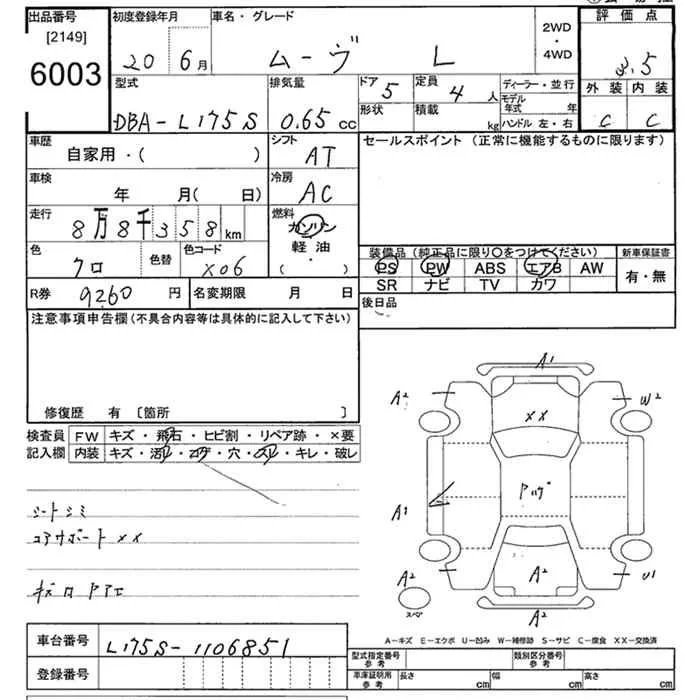 出品番号 初度登録年月 車名・グレード 評価点
[2149] 2WD
6003 20 6月 ムーヴ L ・ 3.5
4WD
型式 排気量 ドア 5 定員 4人 ディーラー・並行 外装 内装
モデル年式 年
DBA-L175S 0.65cc 形状 積載 kg ハンドル 左・右 C C
車歴 シフト セールスポイント (正常に機能するものに限ります)
自家用・( ) AT
車検 冷房
年 月(日) AC
走行 燃料
8万8千358km ガソリン
軽油
( ・ )
色 色替 色コード 装備品(純正品に限り○をつけてください) 新車保証書
クロ X06 PS PW ABS エアB AW 有・無
SR ナビ TV カワ
R券 9260円 名変期限 月 日 後日品
注意事項申告欄(不具合内容等は具体的に記入して下さい)
修復歴 有 [箇所 ]
検査員 FW キズ・飛石・ヒビ割・リペア跡・×要
記入欄 内装 キズ・汚れ・コゲ・穴・スレ・キレ・破レ
シートシミ
コアサポート××
A1
A2
W2
××
A1
A2
A2
U1
スペア
A2
A-キズ E-エクボ U-凹み W-補修跡 S-サビ C-腐食 XX-交換済
車台番号 L175S-1106851
型式指定番号 参考 類別区分番号 参考
登録番号
車庫証明用 参考 長さ cm 幅 cm 高さ cm